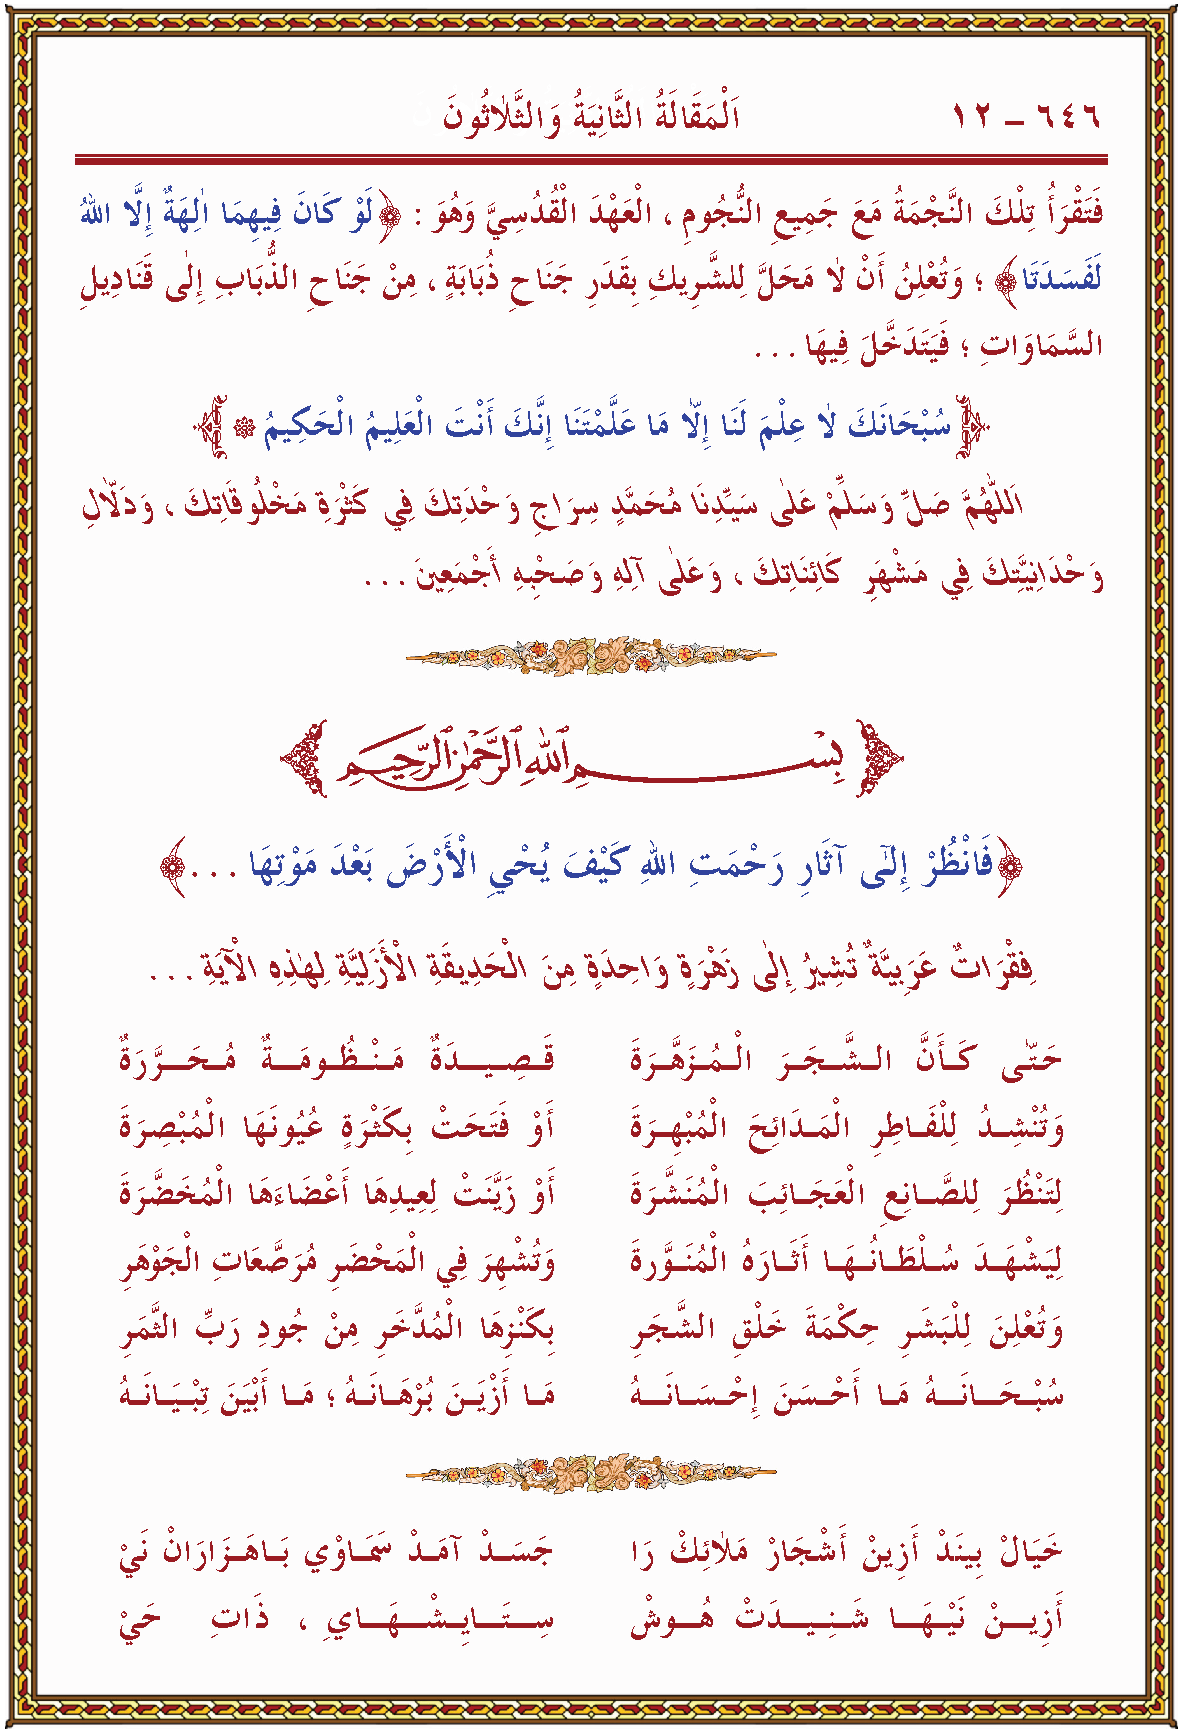 ٦٤٦ – ١٢ اَلْمَقَالَةُ الثَّانِيَةُ وَالثَّلَاثُونَ
فَتَقْرَأُ تِلْكَ النَّجْمَةُ مَعَ جَمِيعِ النُّجُومِ ، الْعَهْدَ الْقُدْسِيَّ وَهُوَ : ﴿لَوْ كَانَ فِيهِمَا اٰلِهَةٌ إِلَّا اللهُ
لَفَسَدَتَا﴾ ؛ وَتُعْلِنُ أَنْ لَا مَحَلَّ لِلشَّرِيكِ بِقَدَرِ جَنَاحِ ذُبَابَةٍ ، مِنْ جَنَاحِ الذُّبَابِ إِلَى قَنَادِيلِ
السَّمَاوَاتِ ؛ فَيَتَدَخَّلَ فِيهَا . . .
﴿سُبْحَانَكَ لَا عِلْمَ لَنَا إِلَّا مَا عَلَّمْتَنَا إِنَّكَ أَنْتَ الْعَلِيمُ الْحَكِيمُ ۞﴾
اَللّٰهُمَّ صَلِّ وَسَلِّمْ عَلٰى سَيِّدِنَا مُحَمَّدٍ سِرَاجِ وَحْدَتِكَ فِي كَثْرَةِ مَخْلُوقَاتِكَ ، وَدَلَّالِ
وَحْدَانِيَّتِكَ فِي مَشْهَرِ كَائِنَاتِكَ ، وَعَلٰى آلِهِ وَصَحْبِهِ أَجْمَعِينَ . . .
بِسْمِ ٱللهِ ٱلرَّحْمٰنِ ٱلرَّحِيمِ
﴿فَانْظُرْ إِلٰٓى آثَارِ رَحْمَتِ اللهِ كَيْفَ يُحْيِي الْأَرْضَ بَعْدَ مَوْتِهَا . . .﴾
فِقْرَاتٌ عَرَبِيَّةٌ تُشِيرُ إِلٰى زَهْرَةٍ وَاحِدَةٍ مِنَ الْحَدِيقَةِ الْأَزَلِيَّةِ لِهٰذِهِ الْآيَةِ . . .
حَتّٰى كَأَنَّ الشَّجَرَ الْمُزَهَّرَةَ قَصِيدَةٌ مَنْظُومَةٌ مُحَرَّرَةٌ
وَتُنْشِدُ لِلْفَاطِرِ الْمَدَائِحَ الْمُبْهِرَةَ أَوْ فَتَحَتْ بِكَثْرَةٍ عُيُونَهَا الْمُبْصِرَةَ
لِتَنْظُرَ لِلصَّانِعِ الْعَجَائِبَ الْمُنَشَّرَةَ أَوْ زَيَّنَتْ لِعِيدِهَا أَعْضَاءَهَا الْمُخَضَّرَةَ
لِيَشْهَدَ سُلْطَانُهَا أَثَارَهُ الْمُنَوَّرَةَ وَتُشْهِرَ فِي الْمَحْضَرِ مُرَصَّعَاتِ الْجَوْهَرِ
وَتُعْلِنَ لِلْبَشَرِ حِكْمَةَ خَلْقِ الشَّجَرِ بِكَنْزِهَا الْمُدَّخَرِ مِنْ جُودِ رَبِّ الثَّمَرِ
سُبْحَانَهُ مَا أَحْسَنَ إِحْسَانَهُ مَا أَزْيَنَ بُرْهَانَهُ ؛ مَا أَبْيَنَ تِبْيَانَهُ
خَيَالْ بِينَدْ أَزِينْ أَشْجَارْ مَلَائِكْ رَا جَسَدْ آمَدْ سَمَاوِي بَاهَزَارَانْ نَيْ
أَزِينْ نَيْهَا شَنِيدَتْ هُوشْ سِتَايِشْهَايِ ، ذَاتِ حَيْ